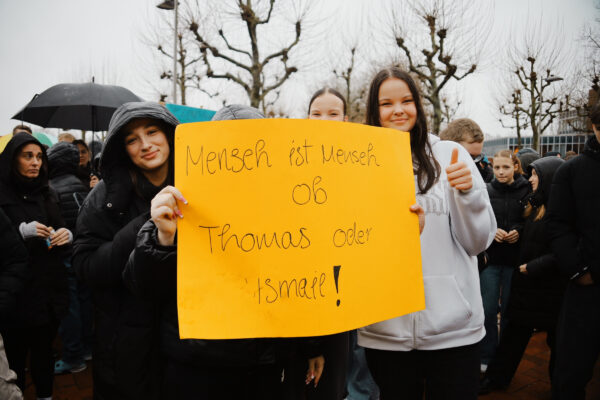 Mensch ist Mensch
ob
Thomas oder
!